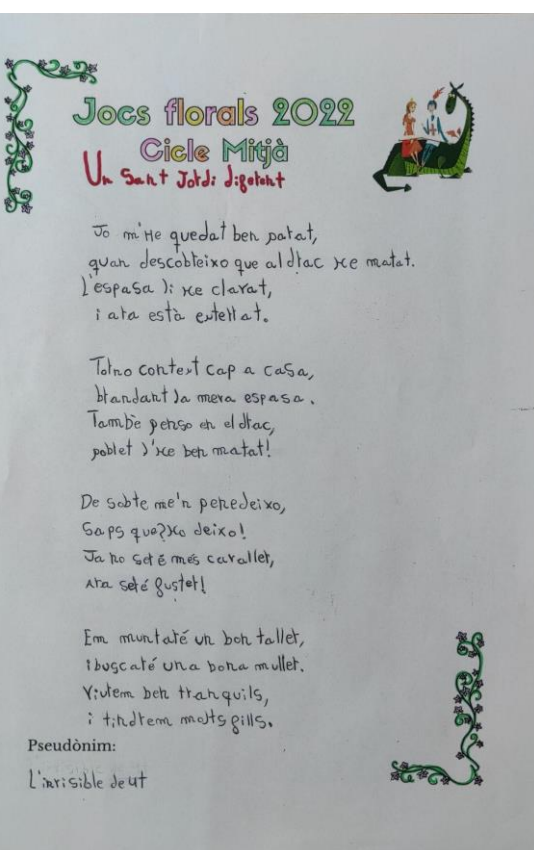 Jocs florals 2022
Cicle Mitjà
Un Sant Jordi diferent
Jo m'He quedat ben parat,
quan descobreixo que al drac He matat.
L'espasa li He clavat,
i ara està enterrat.
Torno content cap a casa,
brandant la meva espasa.
També penso en el drac,
pobret l'He ben matat!
De sobte me'n penedeixo,
Saps que? Ho deixo!
Ja no seré més cavaller,
Ara seré fuster!
Em muntaré un bon taller,
i buscaré una bona muller.
Viurem ben tranquils,
i tindrem molts fills.
Pseudònim:
L'invisible de ut